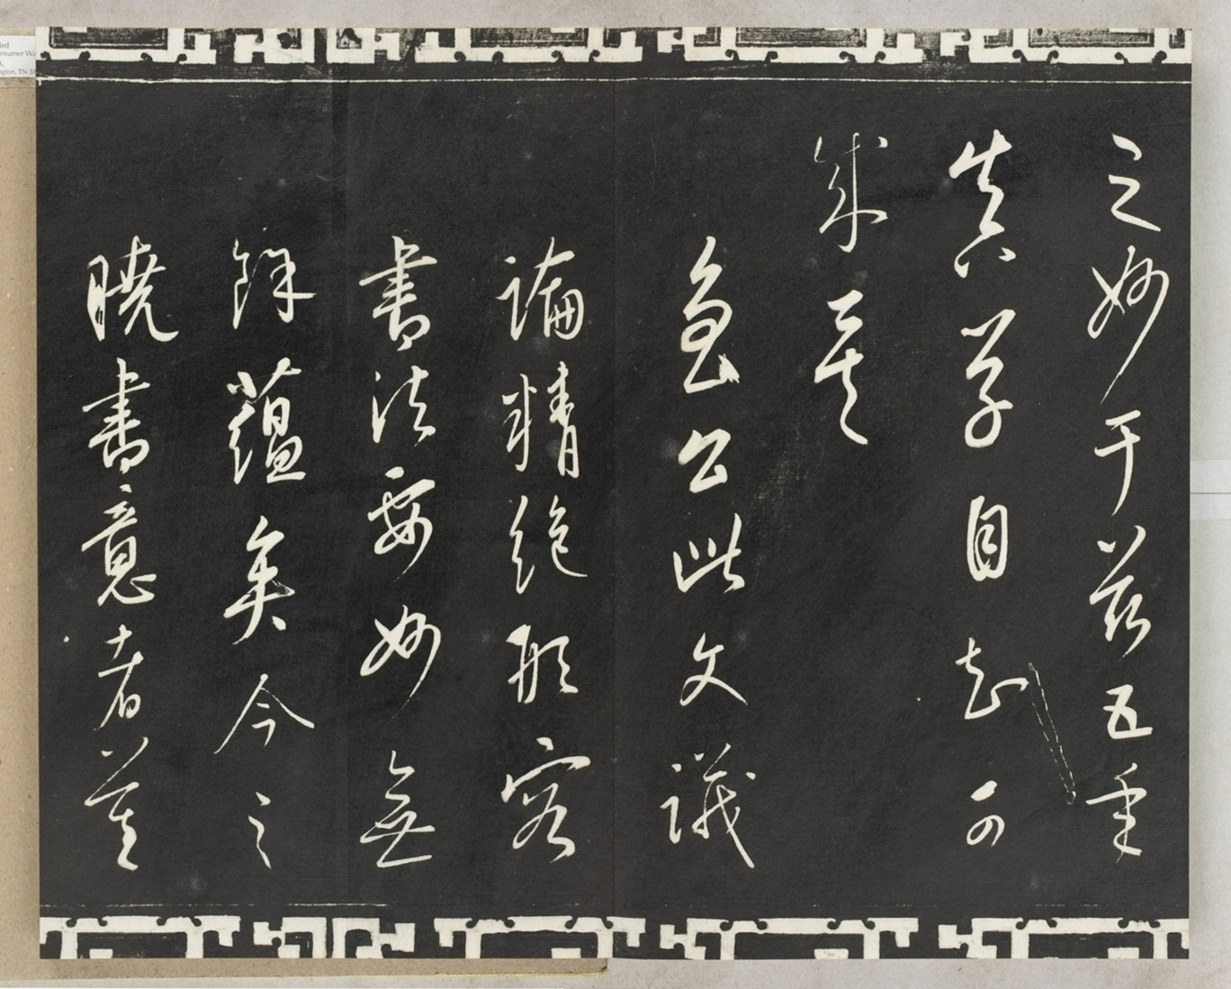 之妙于茲五年
真草自知可
成矣
魯公此文議
論精絕形容
書法要妙無
餘蘊矣今之
曉書意者蓋